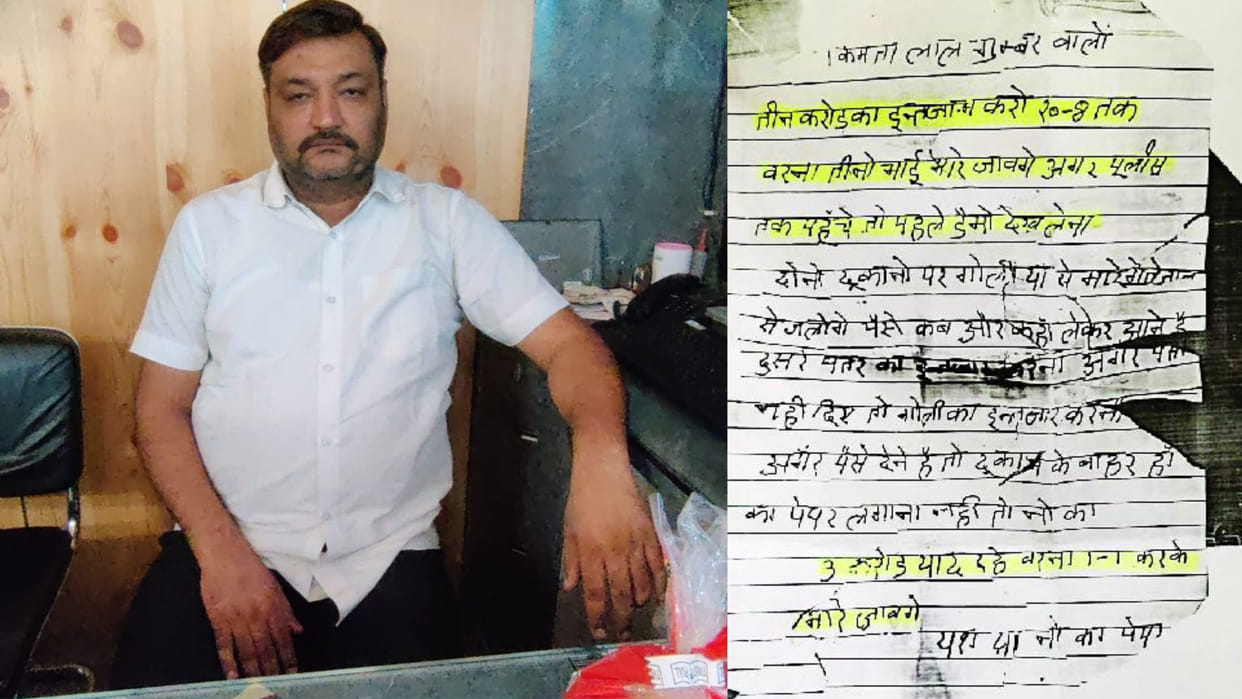 किमता लाल गुम्बर वालों
तीन करोड़ का इन्तजाम करो २०-9 तक
वरना तीनो भाई मारे जावगे अगर पूलीस
तक पहुँचे तो पहले डैमो देख लेना
दोनो दूकानो पर गोली या से मारेगे
से जलोगे पैसे कब और कहाँ लेकर आने है
दुसरे पतर का करना अगर
नही दिए तो गोली का इन्तजार करना
अगर पैसे देने है तो दूकान के बाहर हाँ
का पेपर लगाना नही तो नो का
3 करोड याद रहे वरना 1-1 करके
मारे जावगे
यश या नो का पेपर